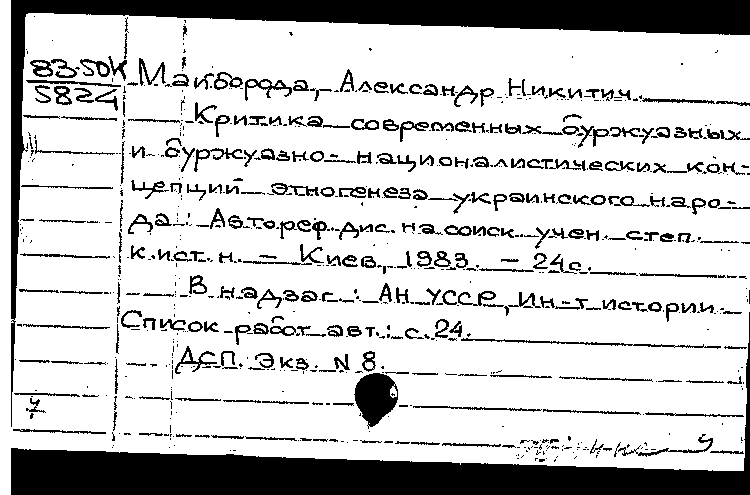 83-50К Майборода, Александр Никитич.
5824
Критика современных буржуазных
и буржуазно-националистических кон-
цепций этногенеза украинского наро-
да: Автореф. дис. на соиск. учен. степ.
к.ист.н. - Киев, 1983. - 24с.
В надзаг.: АН УССР, Ин-т истории.
Список работ авт.: с.24.
ДСП. Экз. N 8.